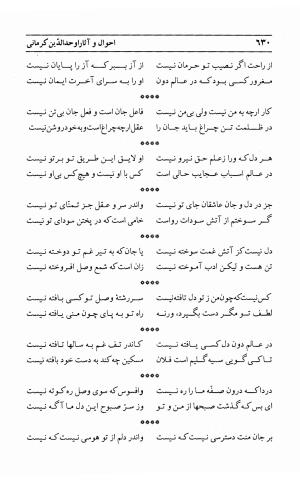 ۶۳۰ احوال و آثار اوحدالدّین کرمانی
از راحت اگر نصیب تو حرمان نیست از آز ببر که آز را پایان نیست
مغرور کسی بود که در عالم دون او را به سرای آخرت ایمان نیست
****
کار ارچه به من نیست ولی بی‌من نیست فاعل جان است و فعل جان بی‌تن نیست
در ظلمت تن چراغ باید جان را عقل ارچه چراغ است و به خود روشن نیست
****
هر دل که ورا ز علم حق نیرو نیست او لایق این طریق تو بر تو نیست
در عالم اسباب عجایب حالی است کس با او نیست و هیچ کس بی‌او نیست
****
جز در دل و جان عاشقان جای تو نیست واندر سر و عقل جز تمنّای تو نیست
گر سوختم از آتش سودات رواست خامی است که در پختن سودای تو نیست
****
دل نیست کز آتش غمت سوخته نیست یا جان که به تیر غم تو دوخته نیست
تن هست و لیکن ادب آموخته نیست زان است که شمع وصل افروخته نیست
****
کس نیست که چون من ز تو دل تافته نیست سررشتهٔ وصل تو کسی یافته نیست
لطف تو مگر دست بگیرد، ورنه راه تو به پای چون منی یافته نیست
****
در عالم دون دل کسی یافته نیست کاندر تف غم به سالها تافته نیست
تا کی گویی سیه گلیم است فلان مسکین چه کند به دست خود بافته نیست
****
دردا که درون صفّه ما را ره نیست وافسوس که سوی وصل ره کوته نیست
ای بس که گذشت صبحها از من و تو وز سرّ صبوح این دل ما آگه نیست
****
بر جان منت دسترسی نیست که نیست واندر دلم از تو هوسی نیست که نیست